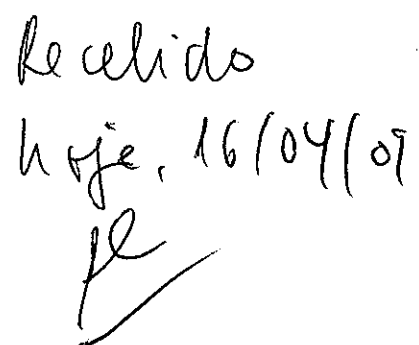 Recebido
hoje, 16/04/09